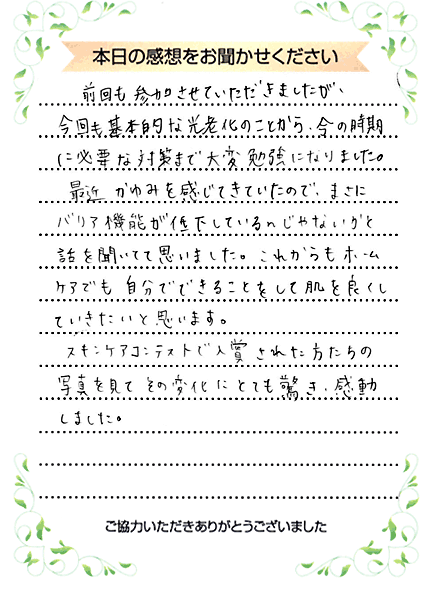 本日の感想をお聞かせください
前回も参加させていただきましたが、
今回も基本的な光老化のことから、今の時期
に必要な対策まで大変勉強になりました。
最近 かゆみを感じてきていたので、まさに
バリア機能が低下しているんじゃないかと
話を聞いてて思いました。これからもホーム
ケアでも 自分でできることをして肌を良くし
ていきたいと思います。
スキンケアコンテストで入賞された方たちの
写真を見て その変化にとても驚き、感動
しました。
ご協力いただきありがとうございました